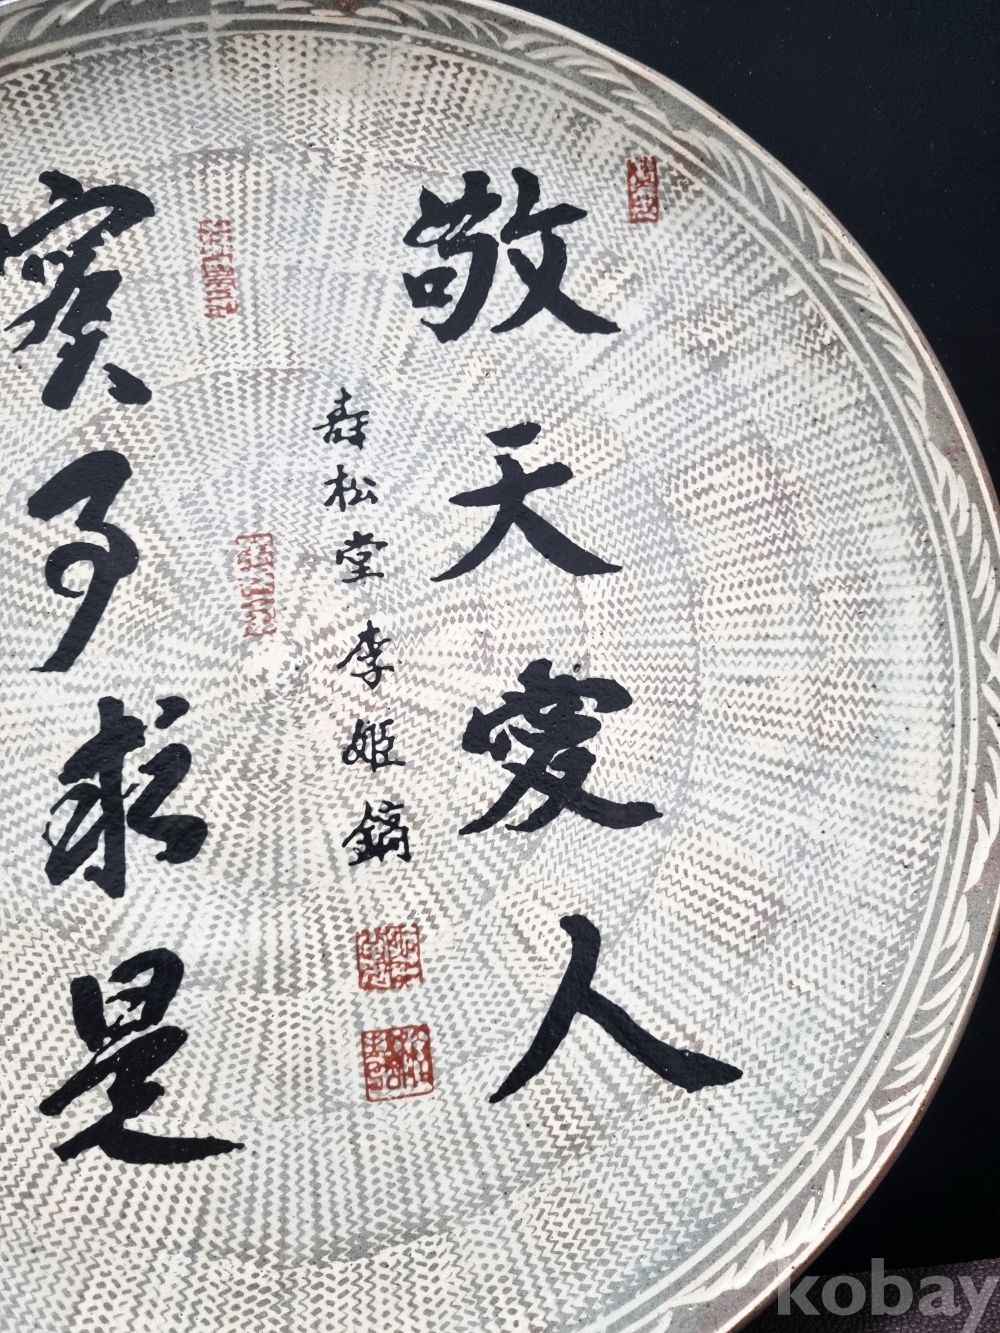 敬天愛人
壽松堂 李姬鎬
實事求是
kobay